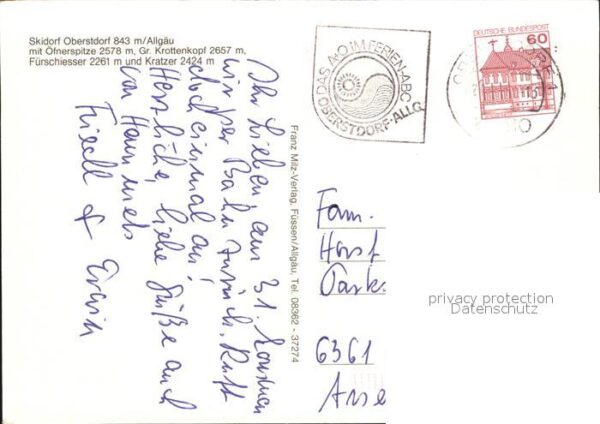 Skidorf Oberstdorf 843 m/Allgäu
mit Öfnerspitze 2578 m, Gr. Krottenkopf 2657 m,
Fürschiesser 2261 m und Kratzer 2424 m
DAS A+O IM FERIEN-ABC
OBERSTDORF-ALLG.
DEUTSCHE BUNDESPOST
60
Ihr Lieben, am 31. kommen
wir per Bahn zurück. Ruft
doch einmal an!
Herzliche, liebe Grüße auch
von Hannes
Friedl & Erwin
Franz Milz-Verlag, Füssen/Allgäu, Tel. 08362 - 37274
Fam.
Horst
Park
6361
privacy protection
Datenschutz